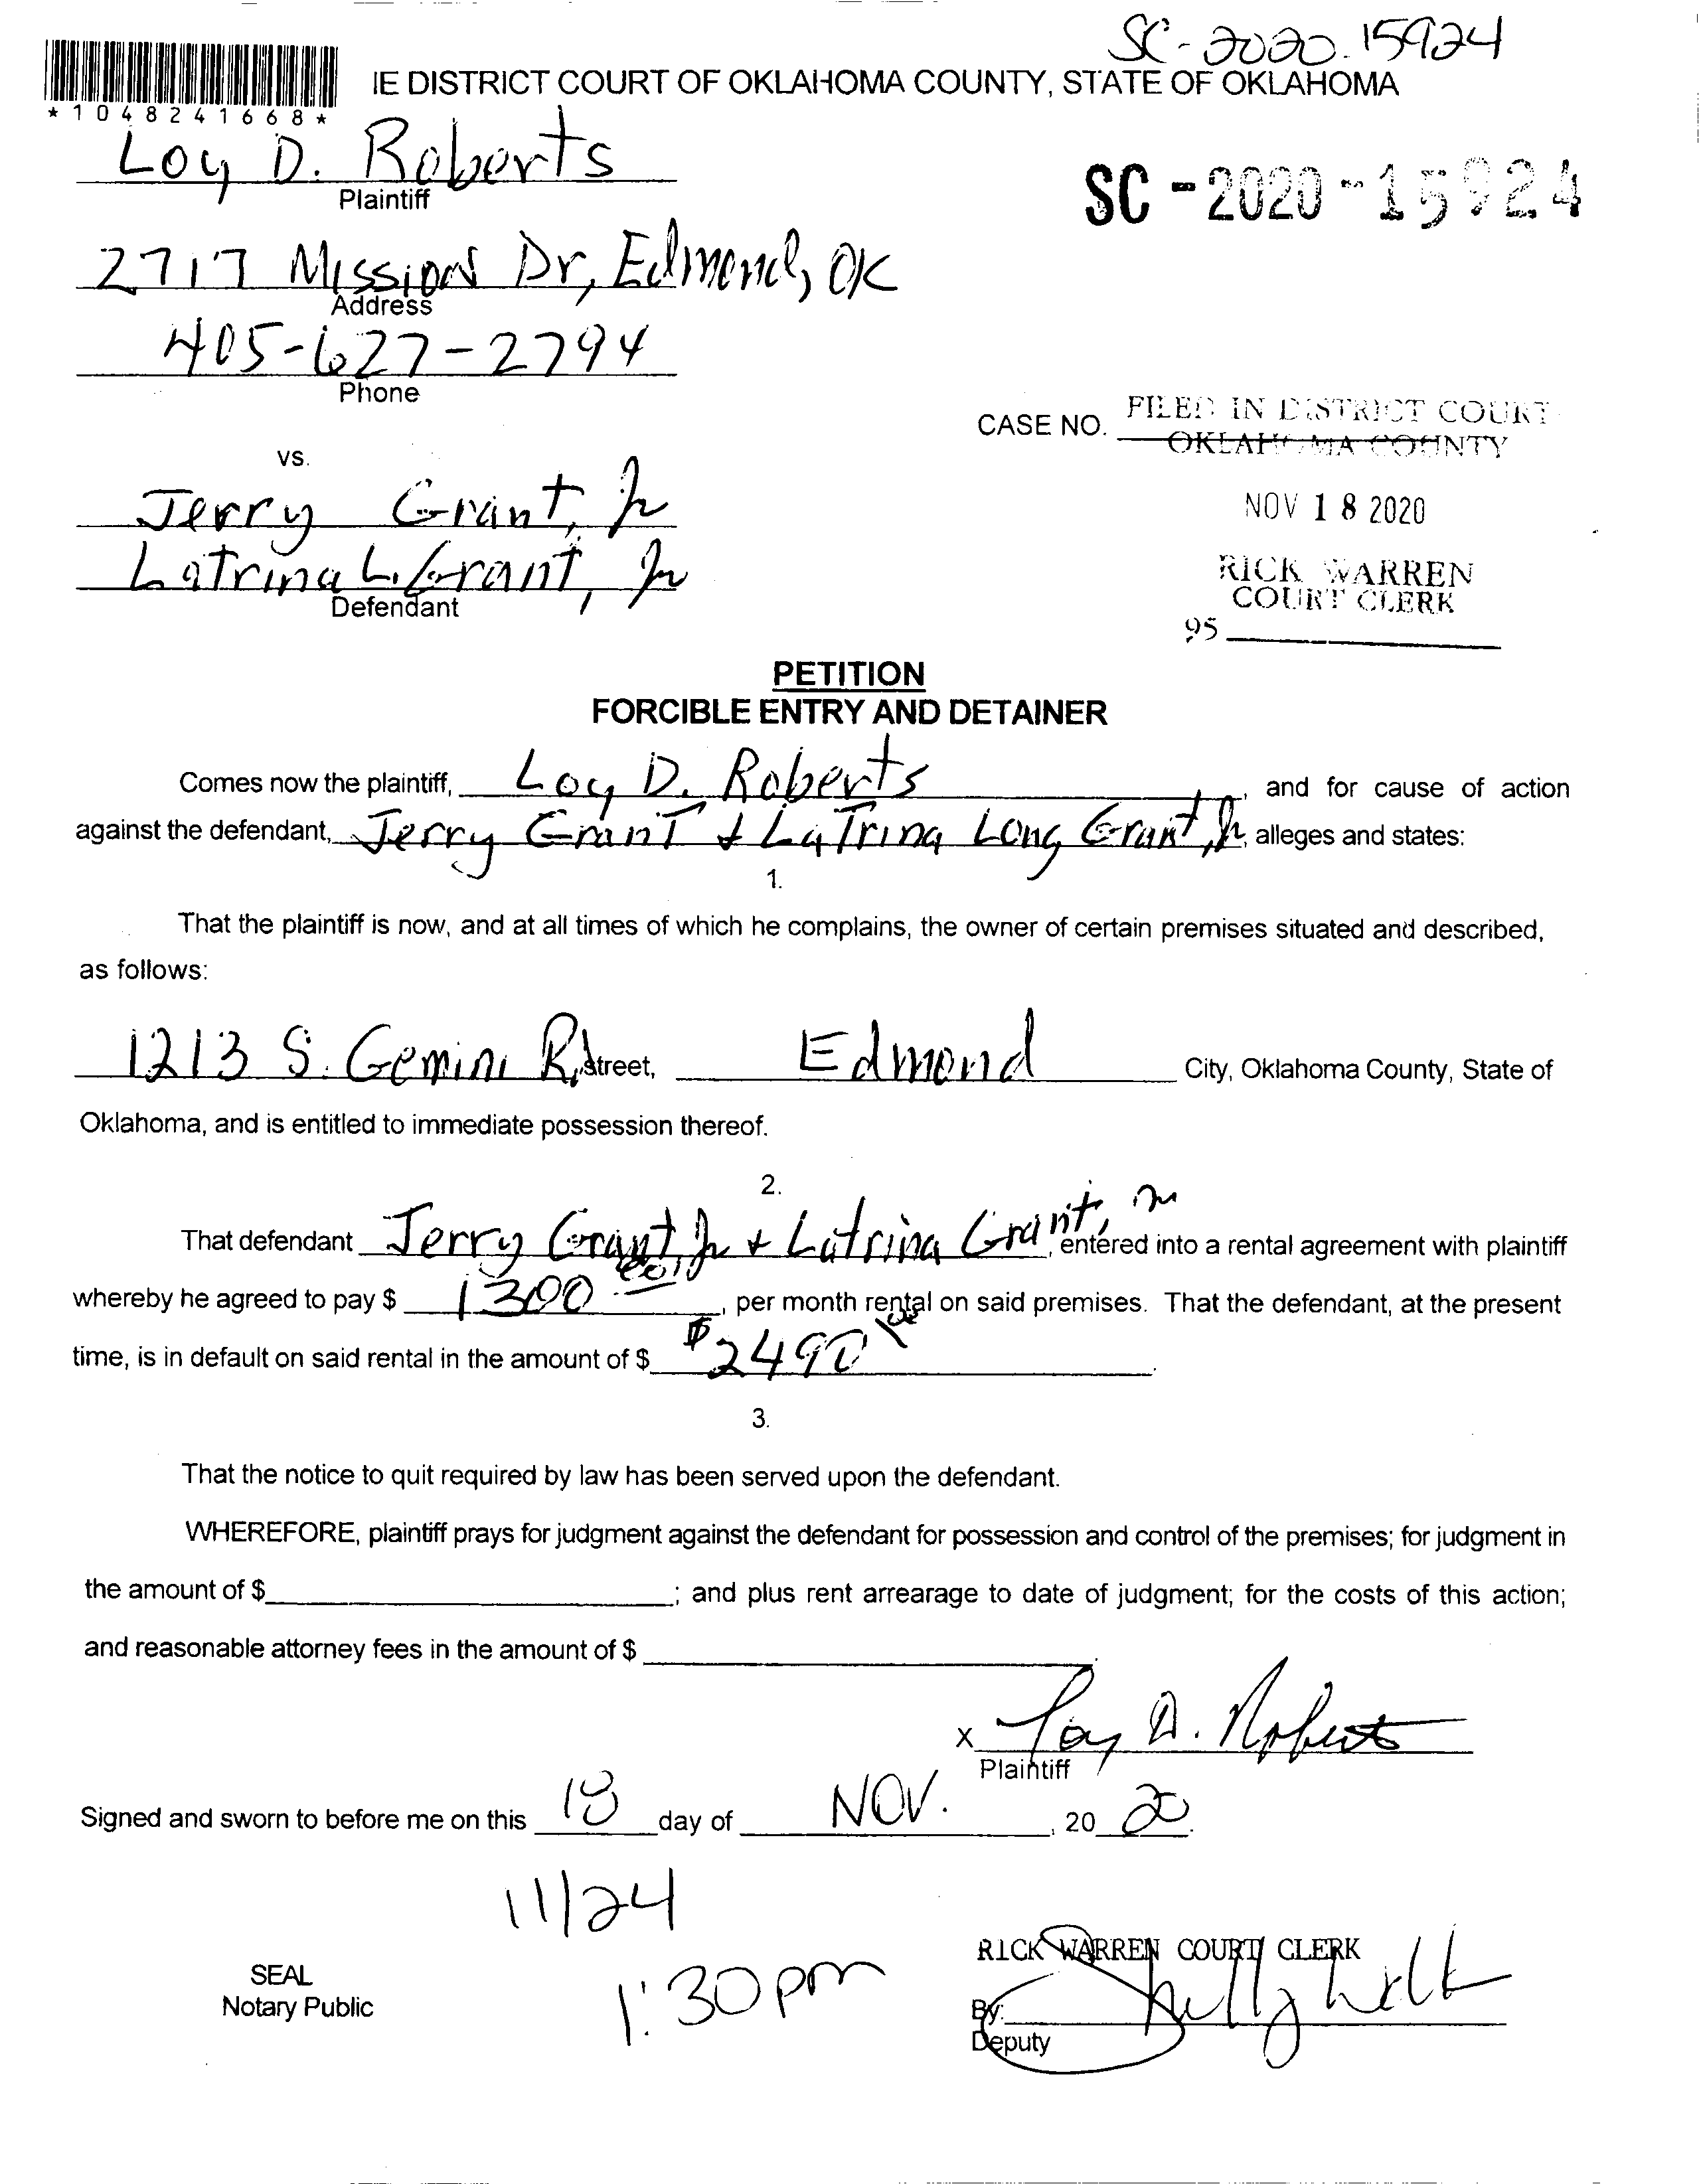 SC-2020-15924
IE DISTRICT COURT OF OKLAHOMA COUNTY, STATE OF OKLAHOMA
*1048241668*
Loy D. Roberts
Plaintiff
SC-2020-15924
2717 Mission Dr, Edmond, OK
Address
405-627-2794
Phone
CASE NO.
FILED IN DISTRICT COURT
OKLAHOMA COUNTY
vs.
NOV 18 2020
Jerry Grant, Jr
Latrina L. Grant, Jr
Defendant
RICK WARREN
COURT CLERK
95
PETITION
FORCIBLE ENTRY AND DETAINER
Comes now the plaintiff, Loy D. Roberts, and for cause of action
against the defendant, Jerry Grant + LaTrina Long Grant, Jr, alleges and states:
1.
That the plaintiff is now, and at all times of which he complains, the owner of certain premises situated and described,
as follows:
1213 S. Gemini Rd Street, Edmond City, Oklahoma County, State of
Oklahoma, and is entitled to immediate possession thereof.
2.
That defendant Jerry Grant Jr + Latrina Grant, Jr, entered into a rental agreement with plaintiff
whereby he agreed to pay $ 1300, per month rental on said premises. That the defendant, at the present
time, is in default on said rental in the amount of $ $2490.
3.
That the notice to quit required by law has been served upon the defendant.
WHEREFORE, plaintiff prays for judgment against the defendant for possession and control of the premises; for judgment in
the amount of $; and plus rent arrearage to date of judgment; for the costs of this action;
and reasonable attorney fees in the amount of $.
x Loy D. Roberts
Plaintiff
Signed and sworn to before me on this 18 day of NOV., 20 20.
11/24
1:30pm
SEAL
Notary Public
RICK WARREN COURT CLERK
By:
Deputy